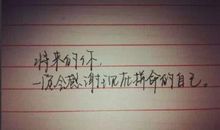 将来的你,
一定会感谢现在拼命的自己。